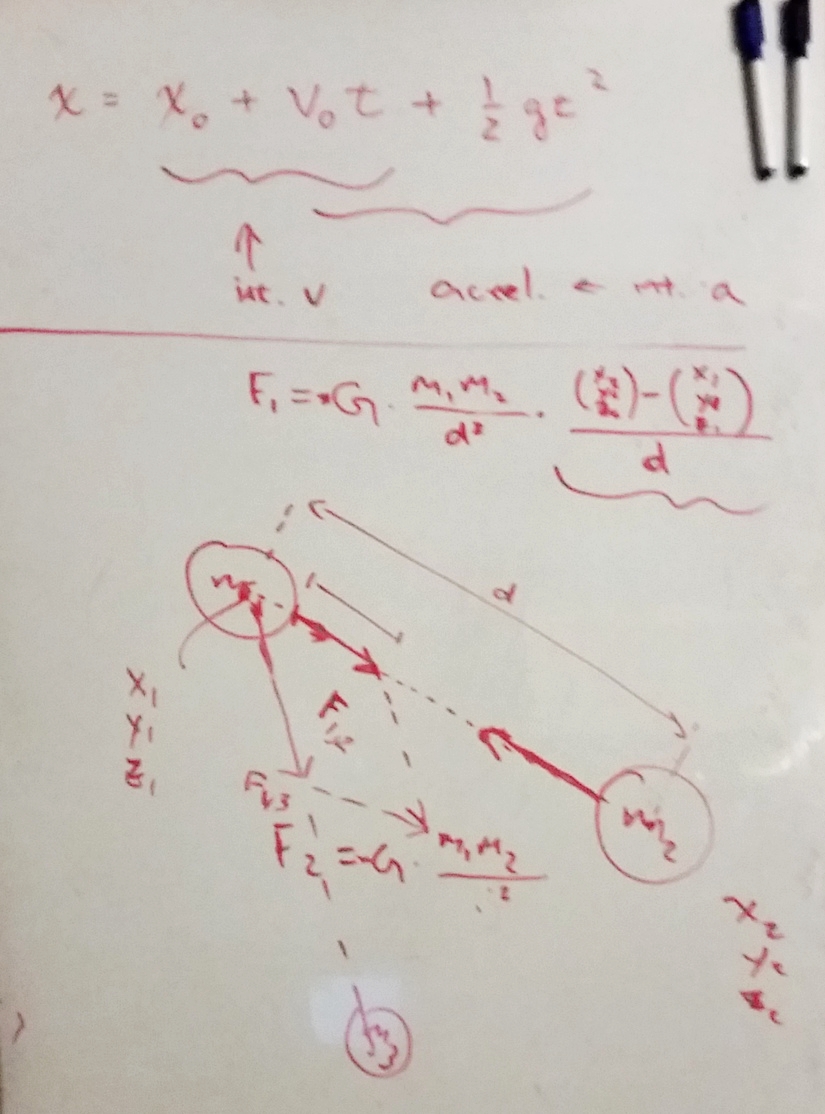 x = x₀ + v₀ t + ½ g t²
int. v accel. ← int. a
F₁ = -G · m₁ m₂ / d² · ((x₂ y₂ z₂) - (x₁ y₁ z₁)) / d
d
m₁
x₁
y₁
z₁
F₁,₂
F₁,₃
F₂ = -G · m₁ m₂ / ²
m₂
x₂
y₂
z₂
m₃